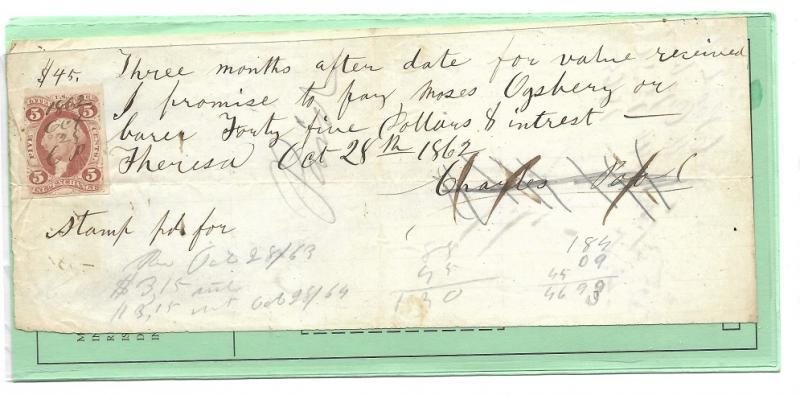 $45.
Three months after date for value received
I promise to pay Moses Ogsbery or
barer Forty five Dollars & intrest —
Theresa Oct 28th 1862
Charles
Stamp pd for
5 5
1862
Oct
28
C P
FIVE CENTS
5 5
Oct 28/63
$3,15 int
$3,15 int Oct 28/64
88
45
130
184
09
45
M
IN
R
IS
D
IN